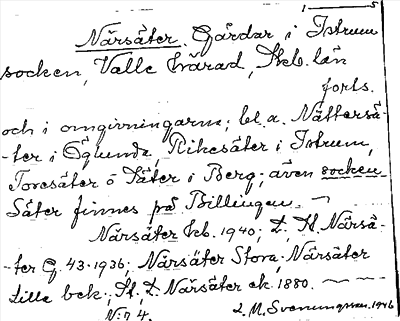 1 5
Närsäter. Gårdar i Istrum
socken, Valle härad, Skb. län
forts.
och i omgivningarna; bl.a. Nättersä-
-ter i Eglunda, Rikesäter i Istrum,
Toresäter o Säter i Berg; även socken
Säter finnes på Billingen.
Närsäter kb. 1940; L. St. Närsä-
-ter G. 43-1936; Närsäter Stora, Närsäter
Lilla bek.; St. L. Närsäter ek. 1880.
N:r 4. L. M. Svenungsson 1946